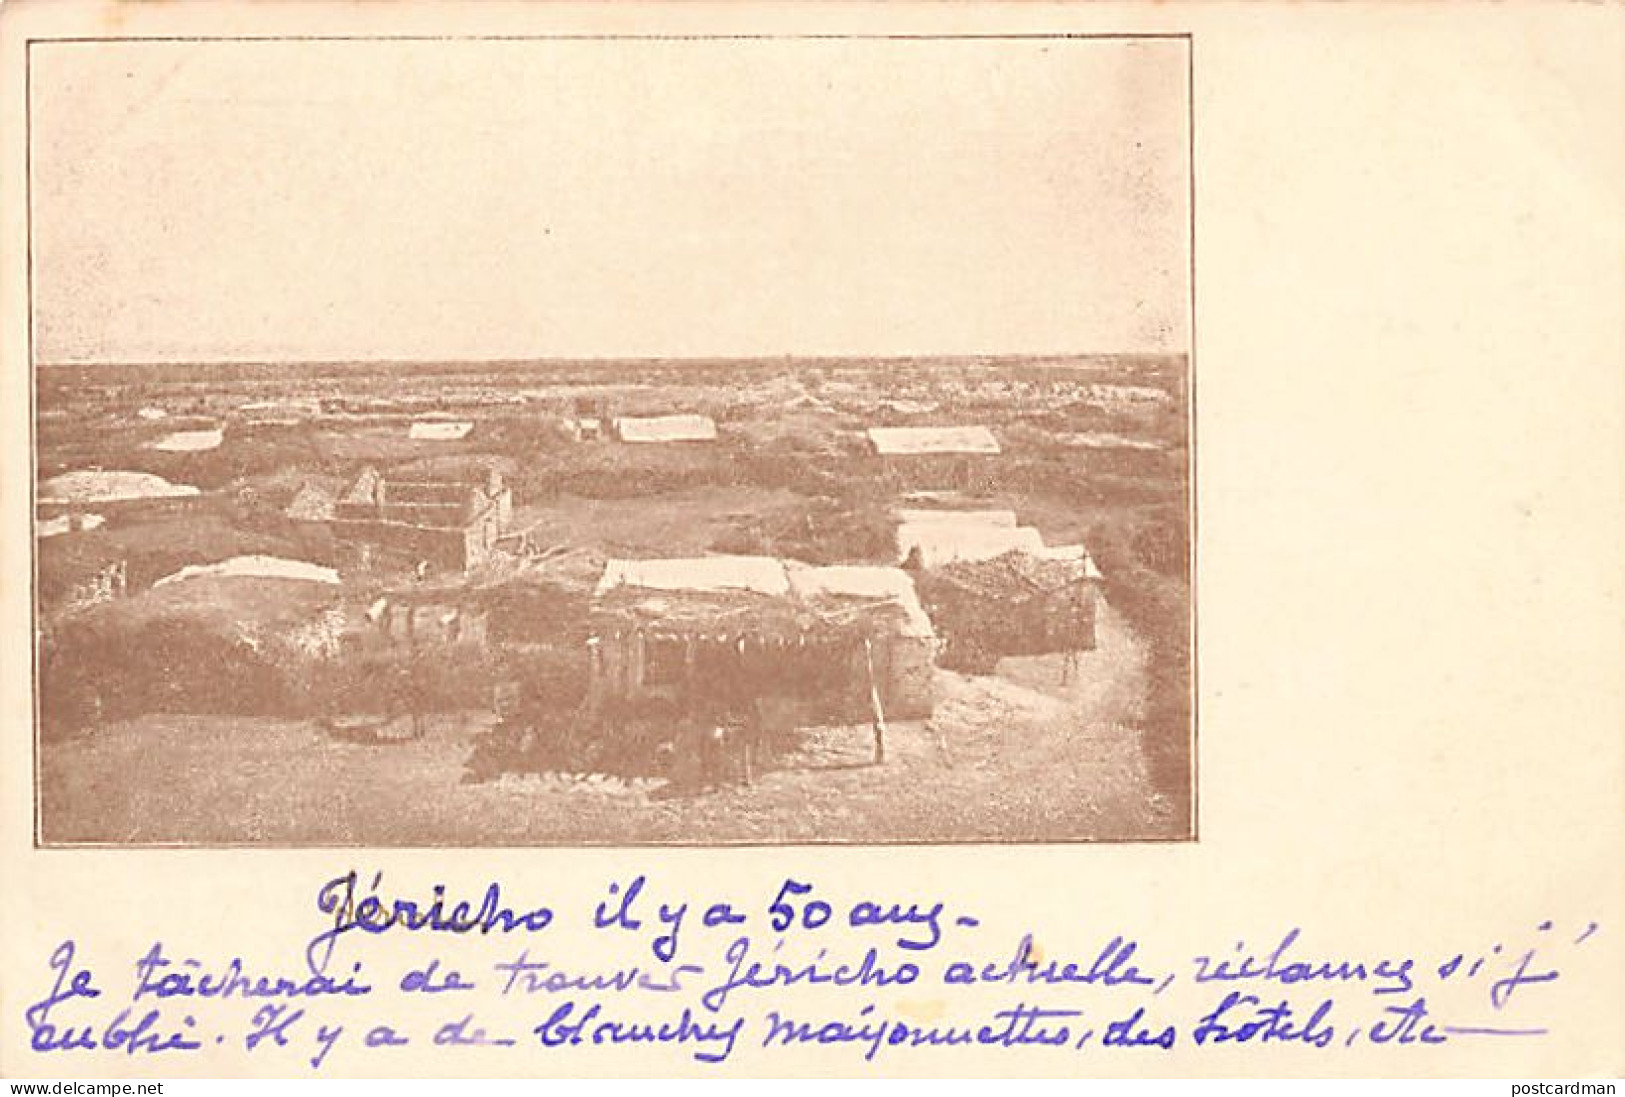 Jéricho il y a 50 ans -
Je tâcherai de trouver Jéricho actuelle, réclamez si j'
oublie. Il y a de blanches maisonnettes, des hôtels, etc —
www.delcampe.net
postcardman